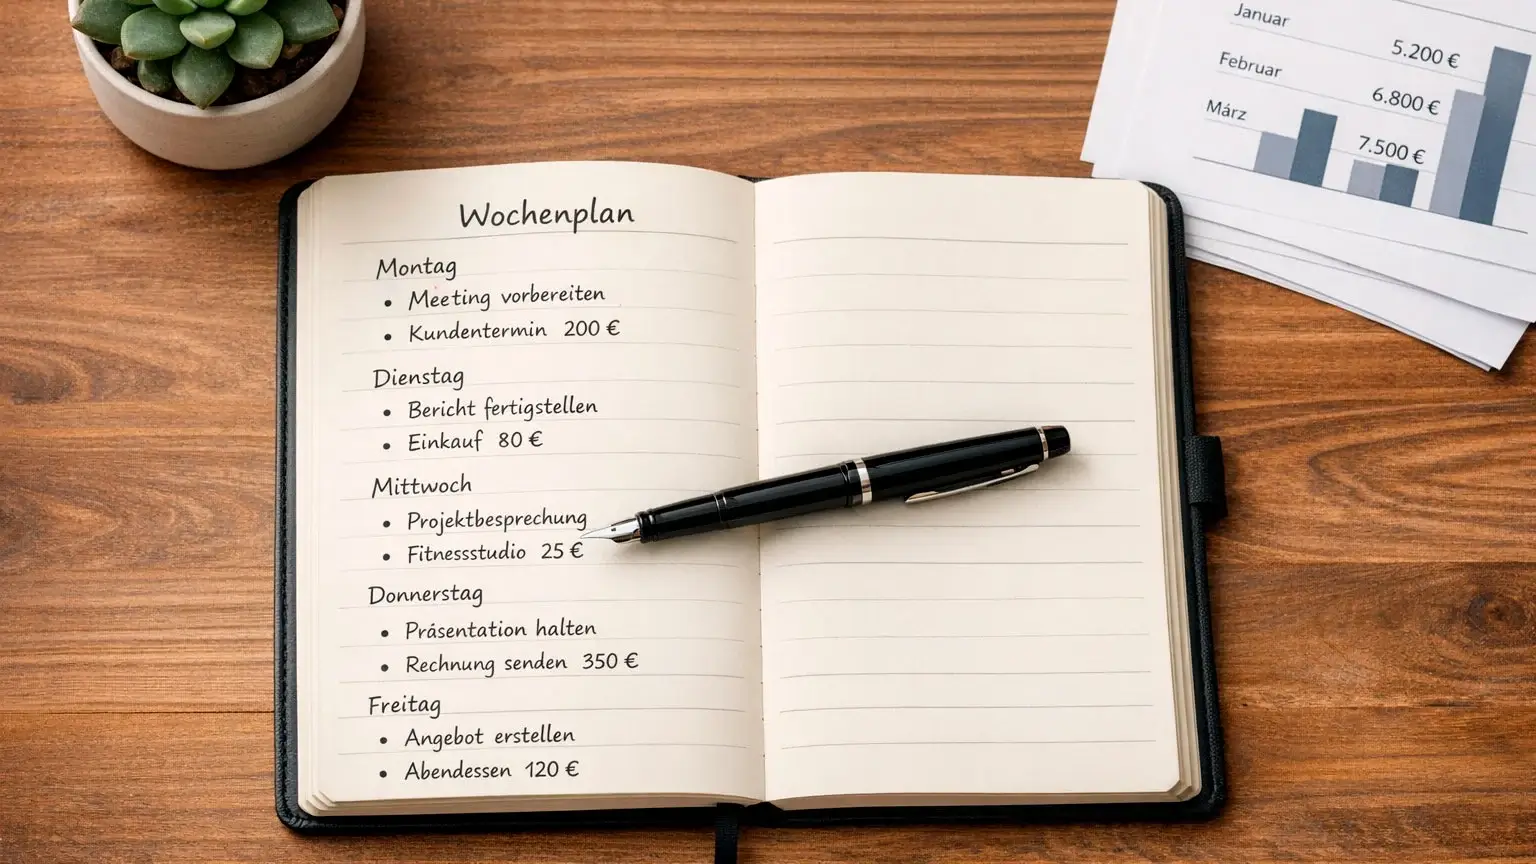 Wochenplan
Montag
• Meeting vorbereiten
• Kundentermin 200 €
Dienstag
• Bericht fertigstellen
• Einkauf 80 €
Mittwoch
• Projektbesprechung
• Fitnessstudio 25 €
Donnerstag
• Präsentation halten
• Rechnung senden 350 €
Freitag
• Angebot erstellen
• Abendessen 120 €
Januar 5.200 €
Februar 6.800 €
März 7.500 €